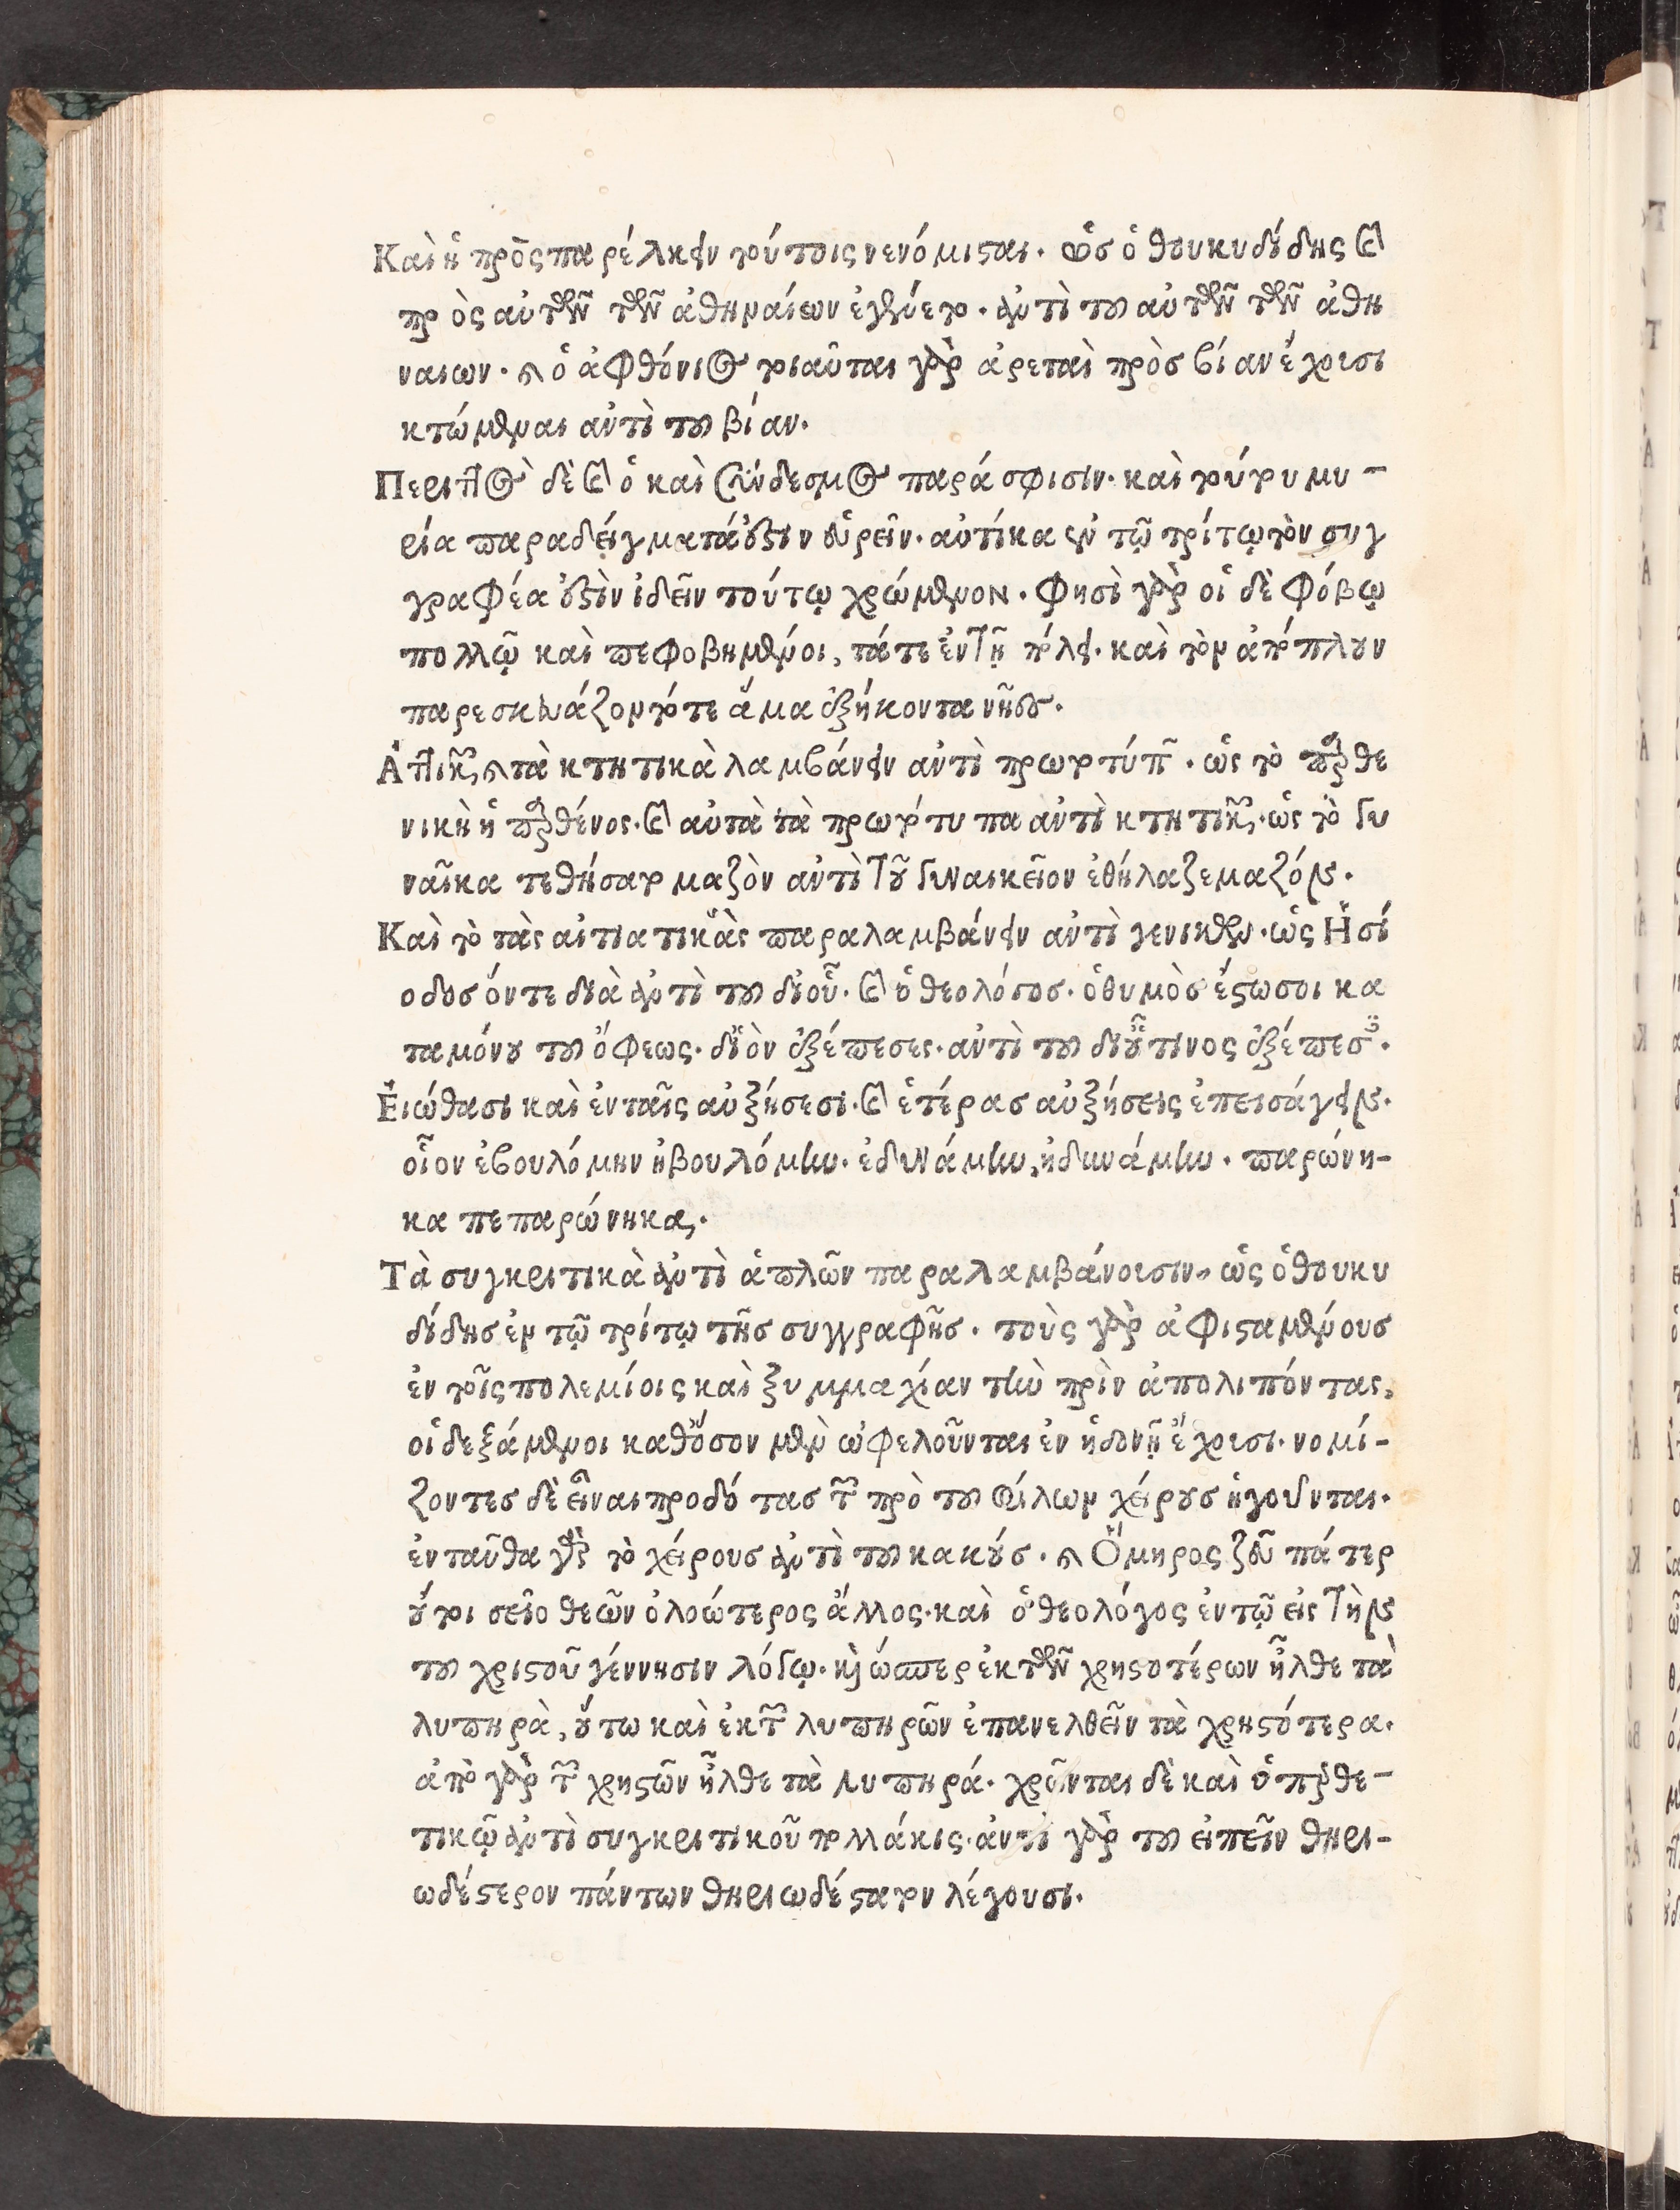 Καὶ ἡ πρὸς παρέλκειν τούτοις νενόμισται. ὡσ ὁ θουκυδίδης καὶ
πρὸς αὐτῶν τῶν ἀθηναίων ἐγένετο. ἀντὶ τοῦ αὐτῶν τῶν ἀθη
ναιων. καὶ ὁ ἀφθόνιος τοιαῦται γὰρ ἀρεταὶ πρὸσ βίαν ἔχουσι
κτώμεναι αὐτὶ τοῦ βίαν.
Περιττὸς δὲ καὶ ὁ καὶ σύνδεσμος παρά σφισιν. καὶ τούτου μυ-
ρία παραδείγματά ἐστιν εὑρεῖν. αὐτίκα ἐν τῷ τρίτῳ τὸν συγ
γραφέα ἐστὶν ἰδεῖν τούτῳ χρώμενον. φησὶ γὰρ οἱ δὲ φόβῳ
πολλῷ καὶ πεφοβημένοι, τάτε ἐν τῇ πόλει. καὶ τὸν ἀπόπλουν
παρεσκευάζοντό τε ἅμα ἑξήκοντα νῆες.
Ἀττικὸν καὶ τὰ κτητικὰ λαμβάνειν αὐτὶ πρωτοτύπων. ὡς τὸ παρθε
νικὴ ἡ παρθένος. καὶ αὐτὰ τὰ πρωτότυπα αὐτὶ κτητικῶν. ὡς τὸ γυ
ναῖκα τεθήσατο μαζὸν αὐτὶ τοῦ γυναικεῖον ἐθήλαζε μαζόν.
Καὶ τὸ τὰς αἰτιατικὰς παραλαμβάνειν αὐτὶ γενικῶν. ὡς Ἡσί
οδοσ ὅντε διὰ ἀντὶ τοῦ δι οὗ. καὶ ὁ θεολόγος. ὁ θυμὸσ ἔστω σοι κα
τα μόνου τοῦ ὄφεως. δι ὃν ἐξέπεσες. αὐτὶ τοῦ δι οὗ τινος ἐξέπεσες.
Εἰώθασι καὶ ἐν ταῖς αὐξήσεσι. καὶ ἑτέρασ αὐξήσεις ἐπεισάγειν.
οἷον ἐβουλόμην ἠβουλόμην. ἐδυνάμην, ἠδυνάμην. παρώνη-
κα πεπαρώνηκα.
Τὰ συγκριτικὰ ἀντὶ ἁπλῶν παραλαμβάνουσιν, ὡς ὁ θουκυ
δίδησ ἐν τῷ τρίτῳ τῆσ συγγραφῆσ. τοὺς γὰρ ἀφισταμένουσ
ἐν τοῖς πολεμίοις καὶ ξυμμαχίαν τὴν πρὶν ἀπολιπόντας,
οἱ δεξάμενοι καθ' ὅσον μὲν ὠφελοῦνται ἐν ἡδονῇ ἔχουσι. νομί-
ζοντεσ δὲ εἶναι προδότασ τῶν πρὸ τοῦ φίλων χείρουσ ἡγοῦνται.
ἐνταῦθα γὰρ τὸ χείρουσ ἀντὶ τοῦ κακούσ. καὶ Ὅμηρος ζεῦ πάτερ
οὔτοι σεῖο θεῶν ὀλοώτερος ἄλλος. καὶ ὁ θεολόγος ἐν τῷ εἰς τὴν
τοῦ χριστοῦ γέννησιν λόγῳ. καὶ ὥσπερ ἐκ τῶν χρηστοτέρων ἦλθε τὰ
λυπηρὰ, οὕτω καὶ ἐκ τῶν λυπηρῶν ἐπανελθεῖν τὰ χρηστότερα.
ἀπὸ γὰρ τῶν χρηστῶν ἦλθε τὰ λυπηρά. χρῶνται δὲ καὶ ὑπερθε-
τικῷ ἀντὶ συγκριτικοῦ πολλάκις. ἀντὶ γὰρ τοῦ εἰπεῖν θηρι-
ωδέστερον πάντων θηριωδέστατον λέγουσι.